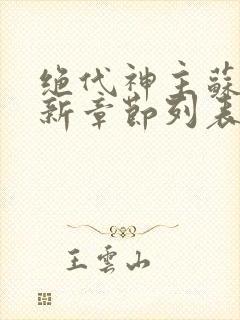 绝代神主蘇
新章節列表
王雲山